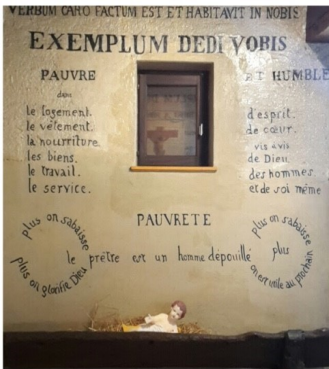 VERBUM CARO FACTUM EST ET HABITAVIT IN NOBIS
EXEMPLUM DEDI VOBIS
PAUVRE
dans
le logement.
le vêtement.
la nourriture.
les biens.
le travail.
le service.
ET HUMBLE
d'esprit.
de cœur.
vis à vis
de Dieu
des hommes
et de soi même
PAUVRETE
le prêtre est un homme dépouillé
plus on s'abaisse
plus on glorifie Dieu
plus on s'abaisse
plus
on est utile au prochain